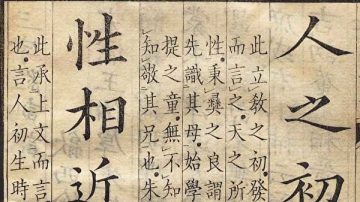 人之初
此立教之初發
而言之天之所
性秉彝之良謂
先識其母始學
提之童無不知
知敬其兄也朱
性相近
此承上文而言
也言人初生時